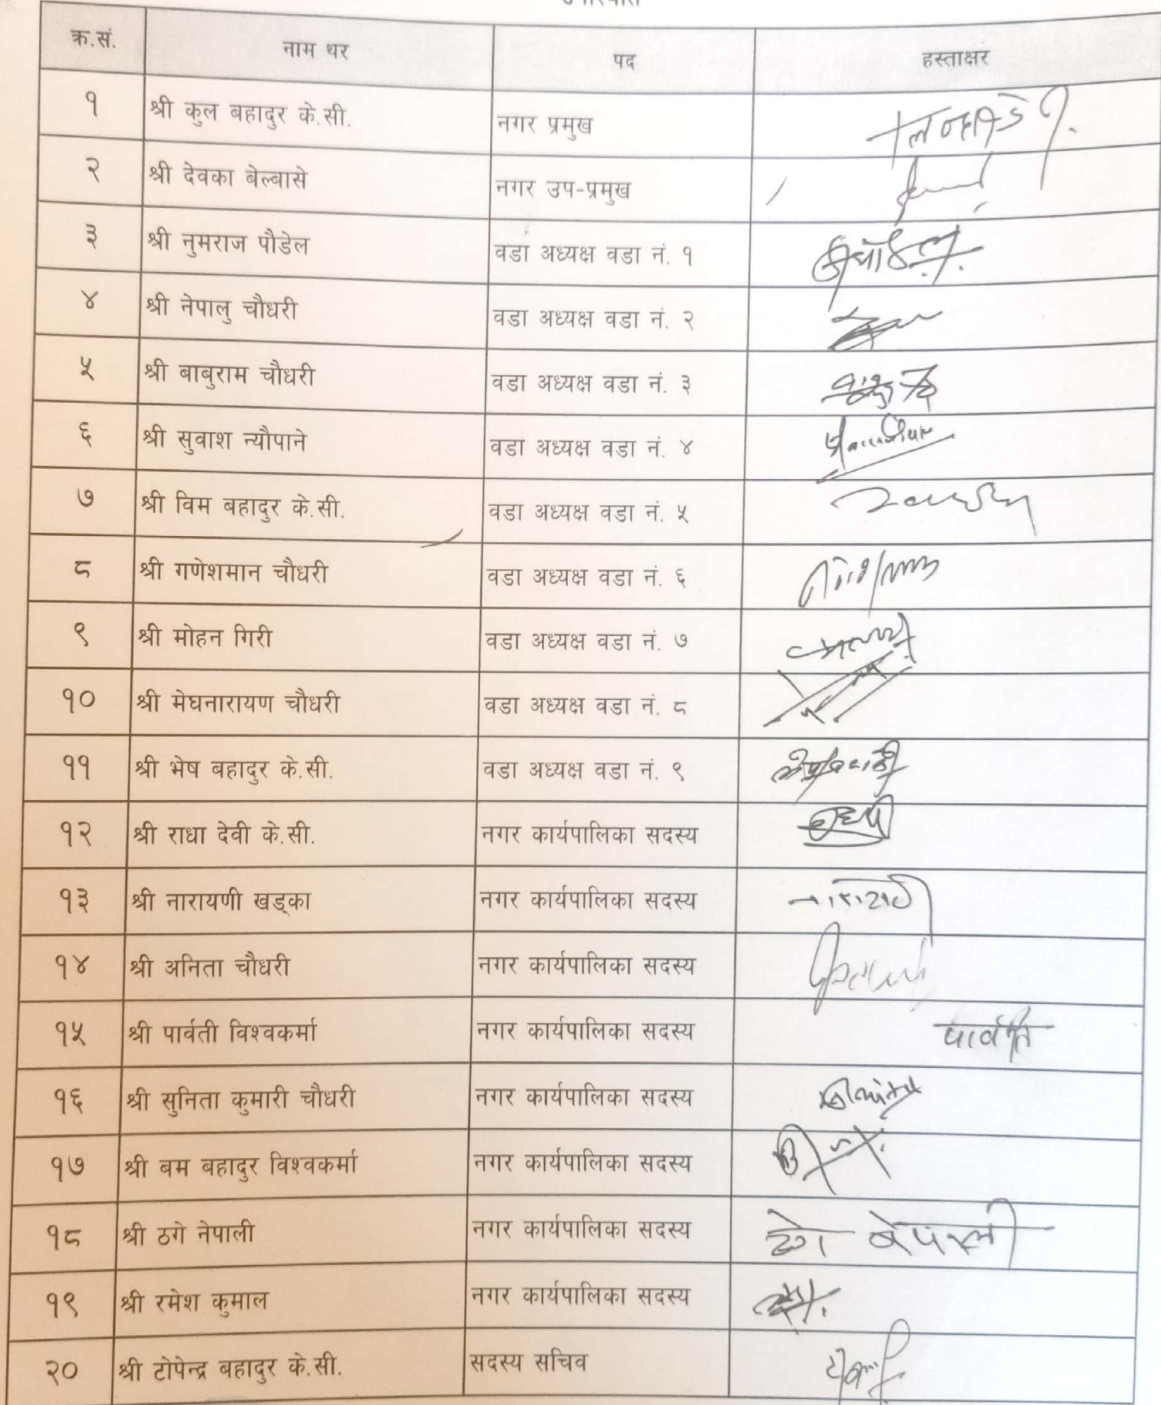 क्र.सं. नाम थर पद हस्ताक्षर
१ श्री कुल बहादुर के.सी. नगर प्रमुख
२ श्री देवका बेल्बासे नगर उप-प्रमुख
३ श्री नुमराज पौडेल वडा अध्यक्ष वडा नं. १
४ श्री नेपालु चौधरी वडा अध्यक्ष वडा नं. २
५ श्री बाबुराम चौधरी वडा अध्यक्ष वडा नं. ३
६ श्री सुवाश न्यौपाने वडा अध्यक्ष वडा नं. ४
७ श्री विम बहादुर के.सी. वडा अध्यक्ष वडा नं. ५
८ श्री गणेशमान चौधरी वडा अध्यक्ष वडा नं. ६
९ श्री मोहन गिरी वडा अध्यक्ष वडा नं. ७
१० श्री मेघनारायण चौधरी वडा अध्यक्ष वडा नं. ८
११ श्री भेष बहादुर के.सी. वडा अध्यक्ष वडा नं. ९
१२ श्री राधा देवी के.सी. नगर कार्यपालिका सदस्य
१३ श्री नारायणी खड्का नगर कार्यपालिका सदस्य
१४ श्री अनिता चौधरी नगर कार्यपालिका सदस्य
१५ श्री पार्वती विश्वकर्मा नगर कार्यपालिका सदस्य पार्वती
१६ श्री सुनिता कुमारी चौधरी नगर कार्यपालिका सदस्य
१७ श्री बम बहादुर विश्वकर्मा नगर कार्यपालिका सदस्य
१८ श्री ठगे नेपाली नगर कार्यपालिका सदस्य ठगे नेपाली
१९ श्री रमेश कुमाल नगर कार्यपालिका सदस्य
२० श्री टोपेन्द्र बहादुर के.सी. सदस्य सचिव